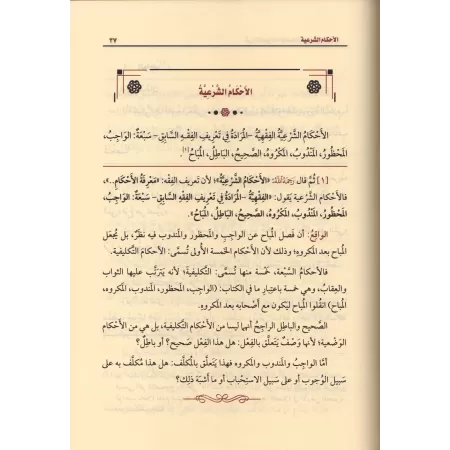 الأحكام الشرعية
٣٧
الأَحْكَامُ الشَّرْعِيَّةُ
الأَحْكَامُ الشَّرْعِيَّةُ الفِقْهِيَّةُ –المُرَادَةُ فِي تَعْرِيفِ الفِقْهِ السَّابِقِ– سَبْعَةٌ: الوَاجِبُ،
المَحْظُورُ، المَنْدُوبُ، المَكْرُوهُ، الصَّحِيحُ، البَاطِلُ، المُبَاحُ[١].
[١] ثُمَّ قال رَحِمَهُ اللَّهُ: «الأَحْكَامُ الشَّرْعِيَّةُ»؛ لأن تَعريف الفِقْه: «مَعْرِفَةُ الأَحْكَامِ..»،
فالأحْكام الشرعية يَقول: «الفِقْهِيَّةُ – المُرَادَةُ فِي تَعْرِيفِ الفِقْهِ السَّابِقِ– سَبْعَةٌ: الوَاجِبُ،
المَحْظُورُ، المَنْدُوبُ، المَكْرُوهُ، الصَّحِيحُ، البَاطِلُ، المُبَاحُ».
الواقِعُ: أن فَصل المُباح عن الواجِبِ والمَحظور والمَندوب فيه نظَرٌ، بل يُجعَل
المُباح بعد المَكروهِ؛ وذلك لأن الأَحْكامَ الخَمْسة الأُولى تُسمَّى: الأحكامَ التَّكليفية.
فالأحكامُ السَّبْعة، خَمْسة منها تُسمَّى: التَّكليفيةَ؛ لأنه يَترتَّب عليها الثواب
والعِقابُ، وهي خمسة باعتِبار ما في الكتاب: (الواجِب، المَحظور، المَندوب، المكروه،
المُباح) انقُلوا المُباح ليَكون مع أَصْحابه بعد المَكروهِ.
الصَّحيح والباطِل الراجِحُ أنهما ليسا من الأحكام التَّكليفية، بل هي من الأحكام
الوَضْعية؛ لأنها وَصْفٌ يَتعلَّق بالفِعْل: هل هذا الفِعْل صَحيح؟ أو باطِلٌ؟
أمَّا الواجِبُ والمَندوب والمَكروه فهذا يَتعلَّق بالمُكلَّف: هل هذا مُكلَّف به على
سَبيل الوُجوب أو على سَبيل الاستِحْباب أو ما أَشبَهَ ذلِكَ؟